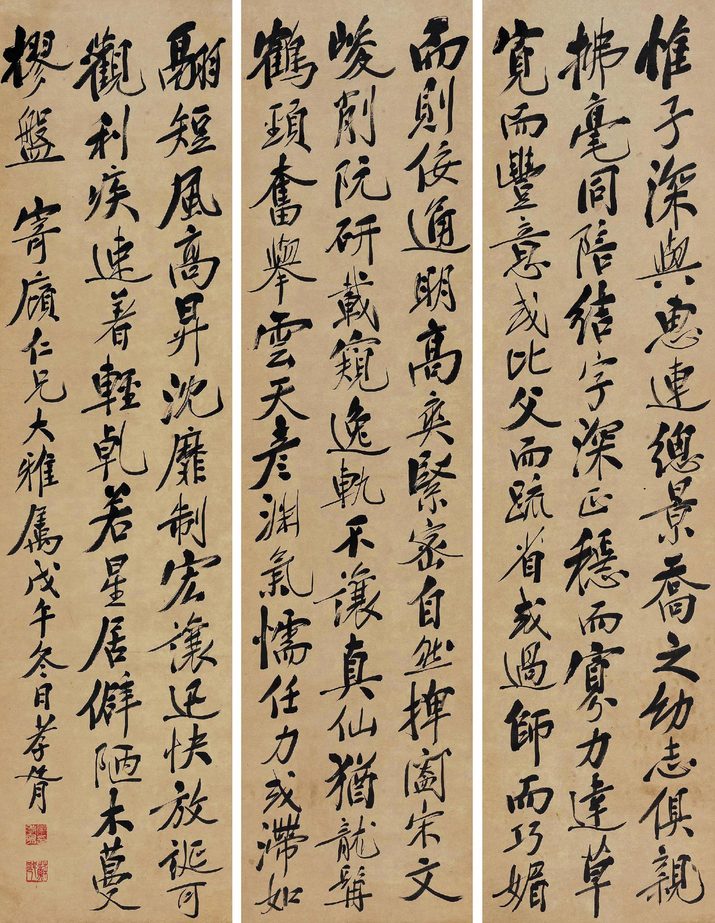 惟子深與惠連總景喬之幼志俱親
拂毫同陪結字深正穩而寡力達草
寬而豐意或比父而疏省或過師而巧媚
而則佞通明高爽緊密自然捭闔宋文
峻削阮研載窺逸軌不讓真仙猶龍髯
鶴頸奮舉雲天彥淵氣懦任力或滯如
翮短風高昇沈靡制宏讓迅快放誕可
觀利疾速着輕乹若星居僻陋木蔓
樛盤 寄廎仁兄大雅屬戊午冬日孝胥